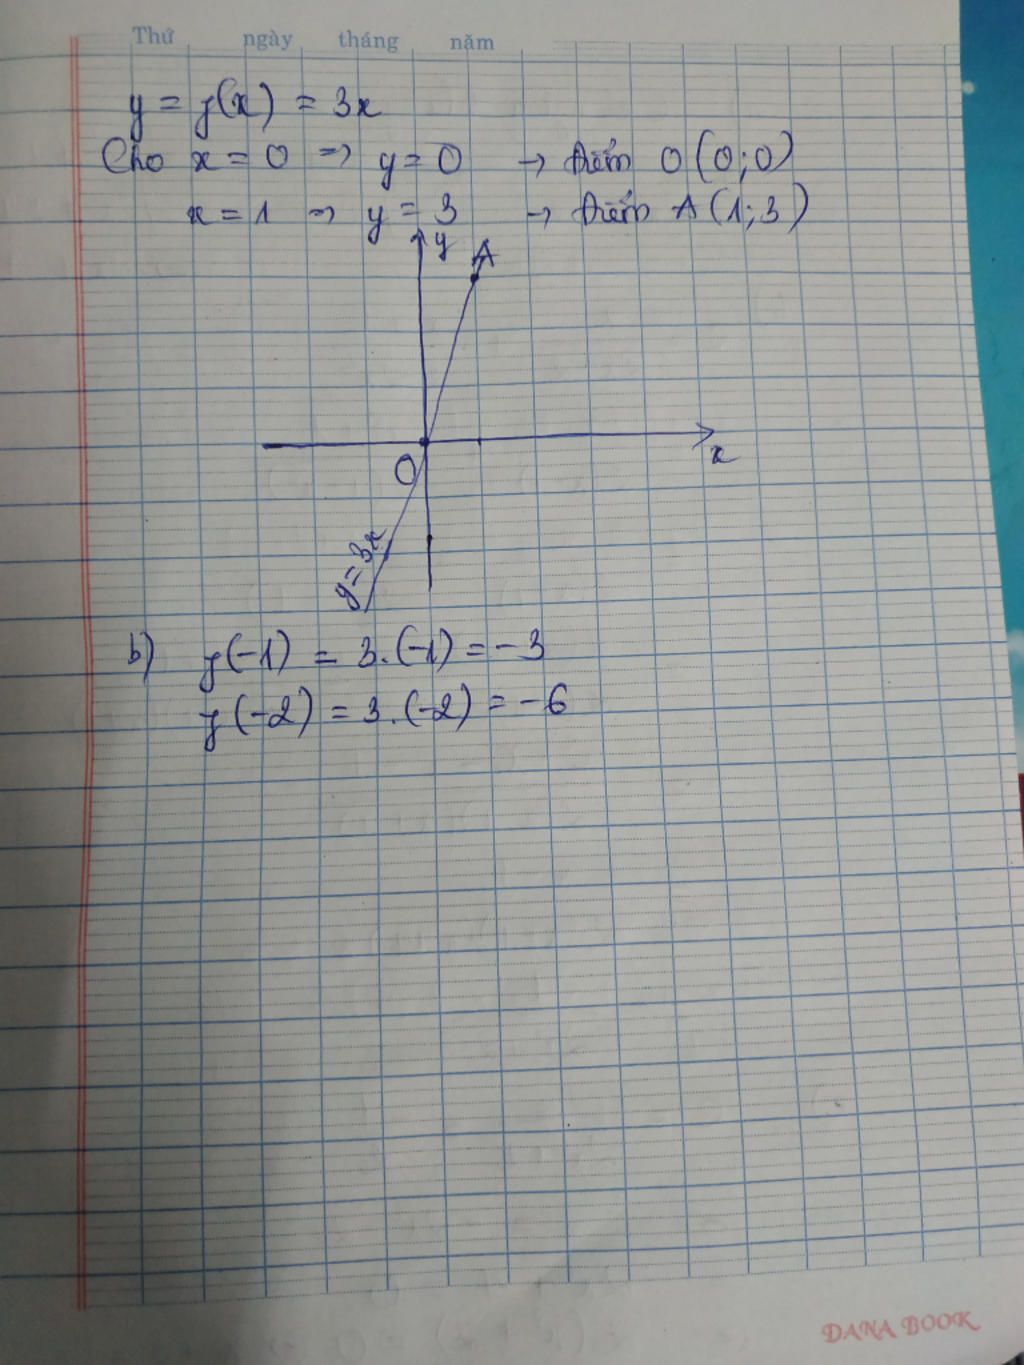 Thứ ngày tháng năm
y = f(x) = 3x
Cho x = 0 => y = 0 → điểm O (0;0)
x = 1 => y = 3 → điểm A (1;3)
y
A
O
x
y = 3x
b) f(-1) = 3.(-1) = -3
f(-2) = 3.(-2) = -6
DANA BOOK